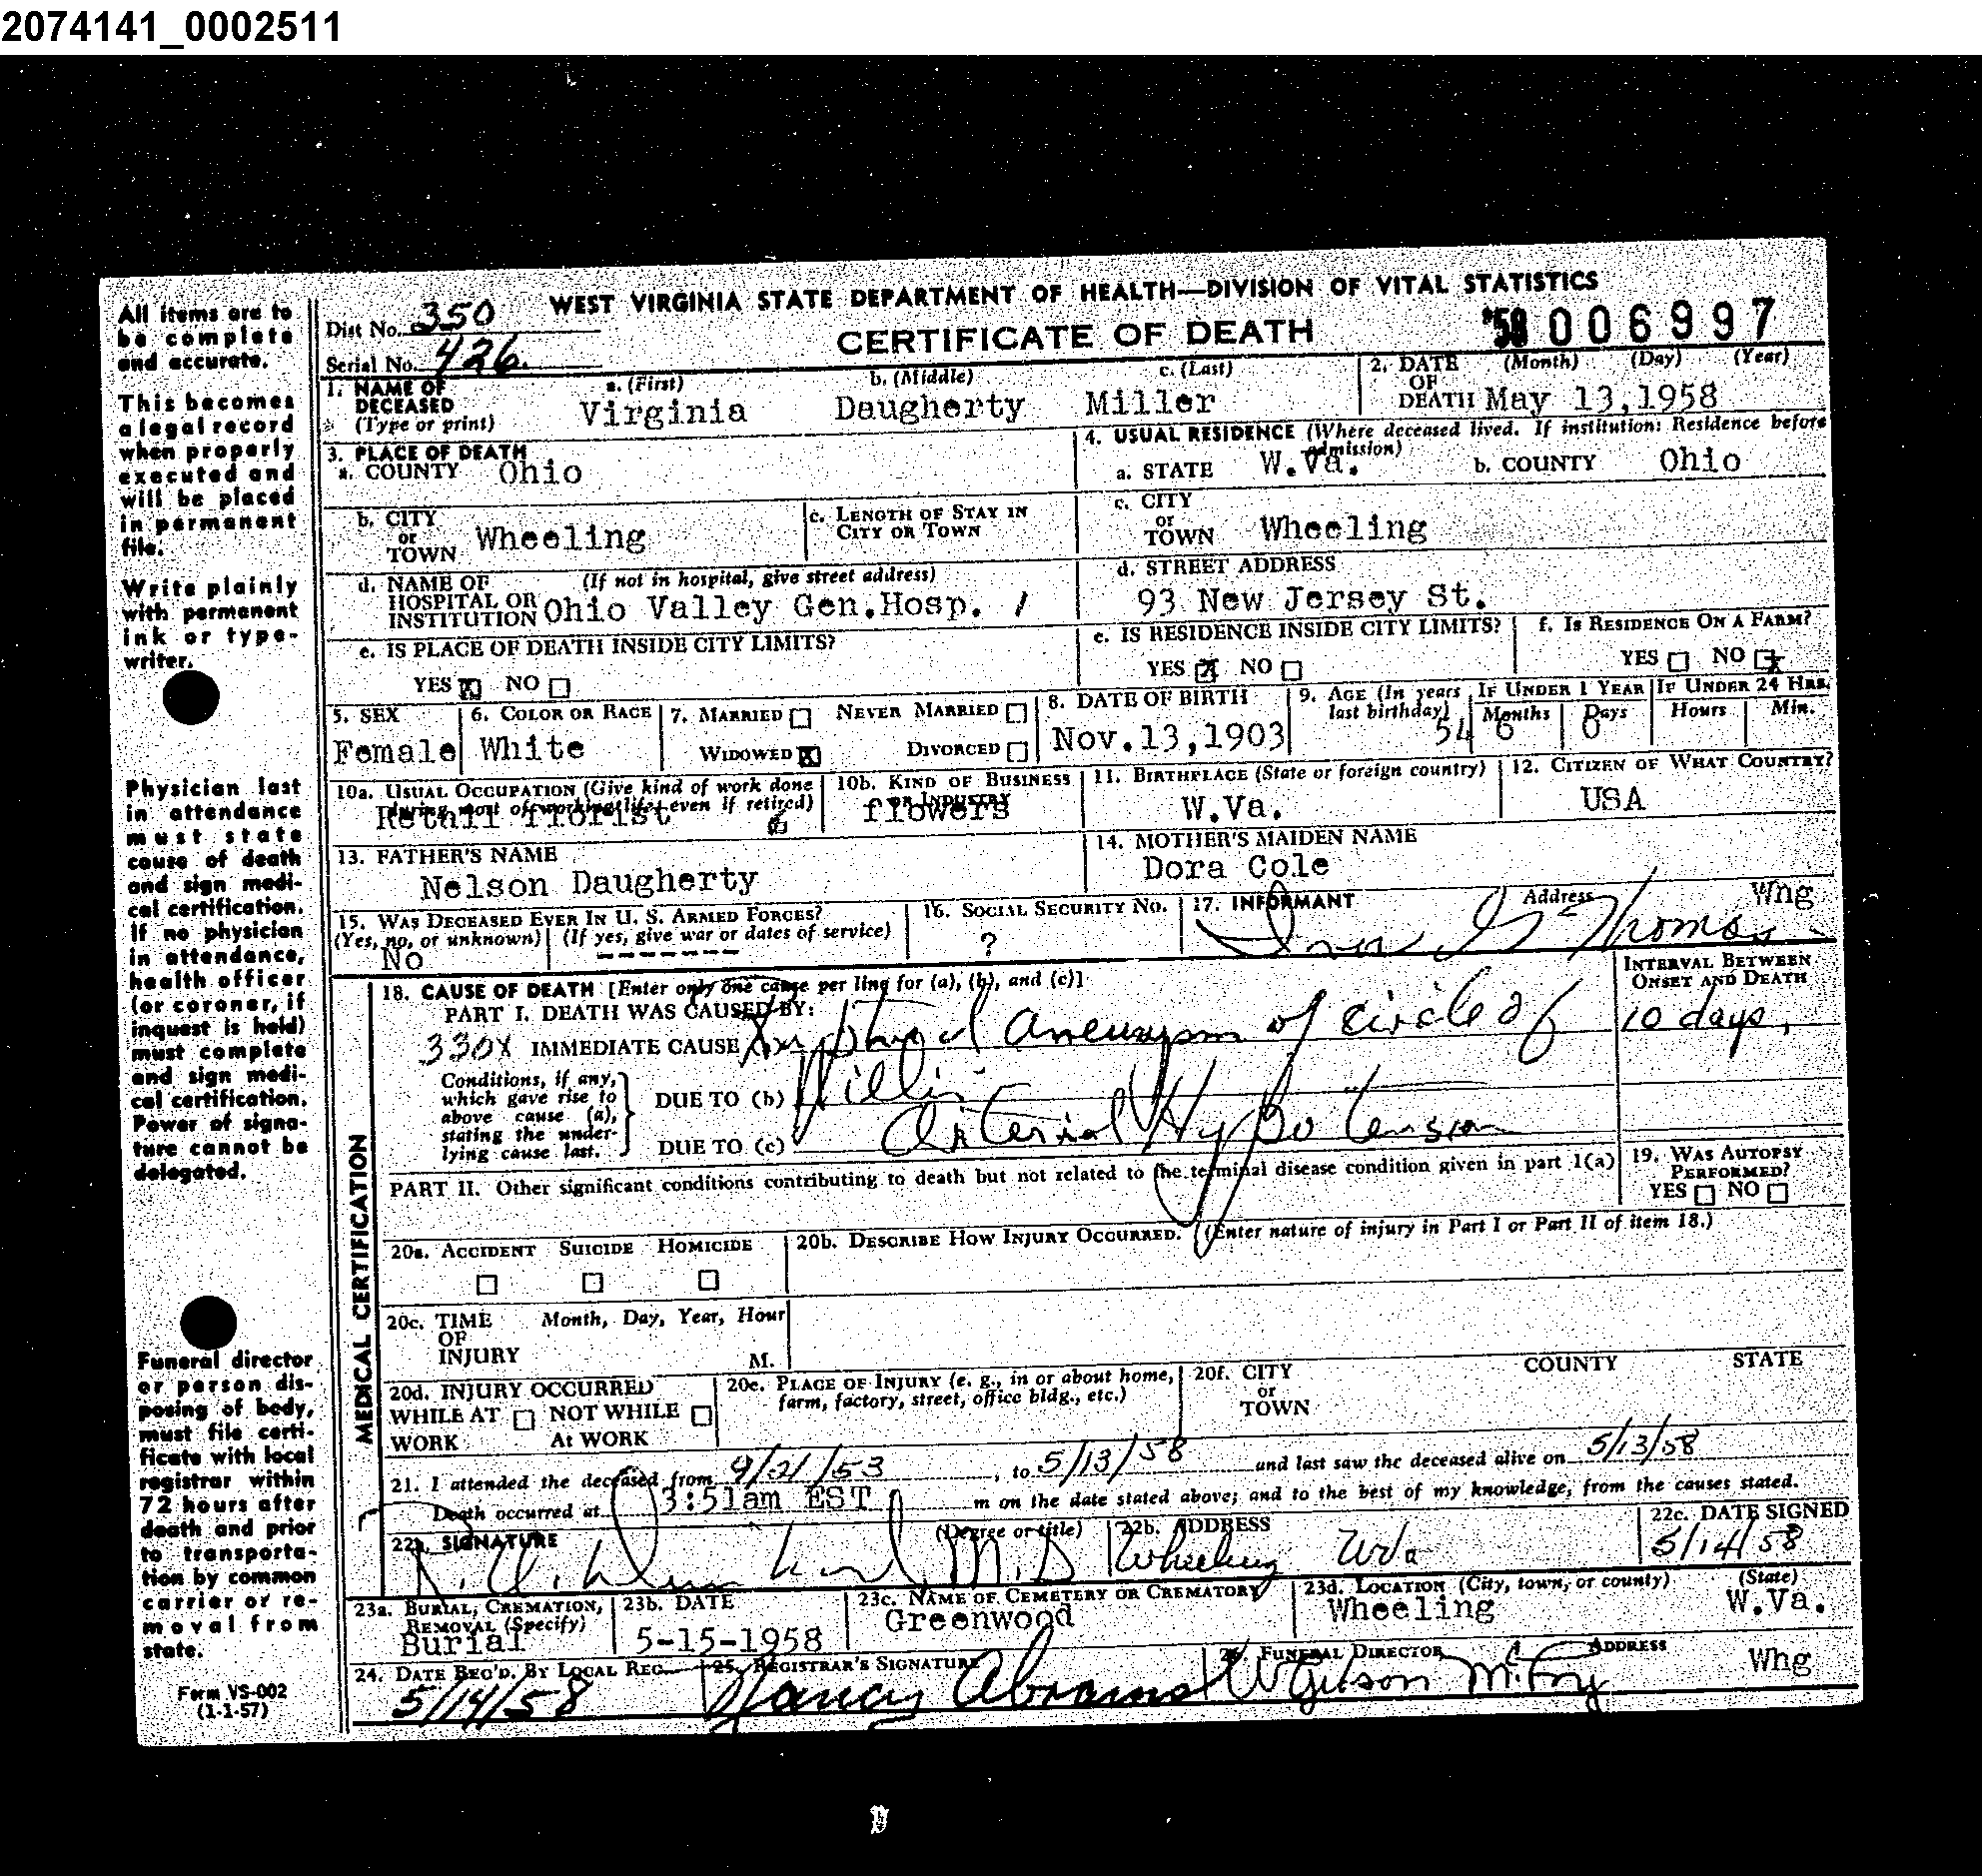 2074141_0002511
All items are to
be complete
and accurate.
This becomes
a legal record
when properly
executed and
will be placed
in permanent
file.
Write plainly
with permanent
ink or type-
writer.
Physician last
in attendance
must state
cause of death
and sign medi-
cal certification.
If no physician
in attendance,
health officer
(or coroner, if
inquest is held)
must complete
and sign medi-
cal certification.
Power of signa-
ture cannot be
delegated.
Funeral director
or person dis-
posing of body,
must file certi-
ficate with local
registrar within
72 hours after
death and prior
to transporta-
tion by common
carrier or re-
moval from
state.
Form VS-002
(1-1-57)
WEST VIRGINIA STATE DEPARTMENT OF HEALTH—DIVISION OF VITAL STATISTICS
Dist No. 350
CERTIFICATE OF DEATH 58 006997
Serial No. 426
1. NAME OF DECEASED (Type or print) a. (First) b. (Middle) c. (Last)
Virginia Daugherty Miller
2. DATE OF DEATH (Month) (Day) (Year)
May 13,1958
3. PLACE OF DEATH
a. COUNTY Ohio
4. USUAL RESIDENCE (Where deceased lived. If institution: Residence before admission)
a. STATE W.Va. b. COUNTY Ohio
b. CITY or TOWN Wheeling
c. LENGTH OF STAY IN CITY OR TOWN
c. CITY or TOWN Wheeling
d. NAME OF HOSPITAL OR INSTITUTION (If not in hospital, give street address)
Ohio Valley Gen.Hosp. /
d. STREET ADDRESS
93 New Jersey St.
e. IS PLACE OF DEATH INSIDE CITY LIMITS?
YES X NO
e. IS RESIDENCE INSIDE CITY LIMITS?
YES X NO
f. IS RESIDENCE ON A FARM?
YES NO X
5. SEX
Female
6. COLOR OR RACE
White
7. MARRIED NEVER MARRIED
WIDOWED X DIVORCED
8. DATE OF BIRTH
Nov.13,1903
9. AGE (In years last birthday) 54
IF UNDER 1 YEAR Months 6 Days 0
IF UNDER 24 HRS. Hours Min.
10a. USUAL OCCUPATION (Give kind of work done during most of working life, even if retired)
Retail florist
10b. KIND OF BUSINESS OR INDUSTRY
flowers
11. BIRTHPLACE (State or foreign country)
W.Va.
12. CITIZEN OF WHAT COUNTRY?
USA
13. FATHER'S NAME
Nelson Daugherty
14. MOTHER'S MAIDEN NAME
Dora Cole
15. WAS DECEASED EVER IN U. S. ARMED FORCES?
(Yes, no, or unknown) (If yes, give war or dates of service)
No -------
16. SOCIAL SECURITY NO.
?
17. INFORMANT Address Whg
Thomas
18. CAUSE OF DEATH [Enter only one cause per line for (a), (b), and (c)]
PART I. DEATH WAS CAUSED BY:
330X IMMEDIATE CAUSE aneurysm of circle of
INTERVAL BETWEEN ONSET AND DEATH
10 days
Conditions, if any, which gave rise to above cause (a), stating the under-lying cause last.
DUE TO (b) Willis
DUE TO (c) Arterial Hypotension
PART II. Other significant conditions contributing to death but not related to the terminal disease condition given in part 1(a)
19. WAS AUTOPSY PERFORMED?
YES NO
20a. ACCIDENT SUICIDE HOMICIDE
20b. DESCRIBE HOW INJURY OCCURRED. (Enter nature of injury in Part I or Part II of item 18.)
20c. TIME OF INJURY Month, Day, Year, Hour
M.
20d. INJURY OCCURRED
WHILE AT WORK NOT WHILE At WORK
20e. PLACE OF INJURY (e. g., in or about home, farm, factory, street, office bldg., etc.)
20f. CITY or TOWN COUNTY STATE
MEDICAL CERTIFICATION
21. I attended the deceased from 4/21/53, to 5/13/58 and last saw the deceased alive on 5/13/58
Death occurred at 3:51am EST m on the date stated above; and to the best of my knowledge, from the causes stated.
22a. SIGNATURE (Degree or title)
M.D
22b. ADDRESS
Wheeling WVa
22c. DATE SIGNED
5/14/58
23a. BURIAL, CREMATION, REMOVAL (Specify)
Burial
23b. DATE
5-15-1958
23c. NAME OF CEMETERY OR CREMATORY
Greenwood
23d. LOCATION (City, town, or county) (State)
Wheeling W.Va.
24. DATE REC'D. BY LOCAL REG.
5/14/58
25. REGISTRAR'S SIGNATURE
Nancy Abrams
26. FUNERAL DIRECTOR ADDRESS
W Gibson McFoy Whg